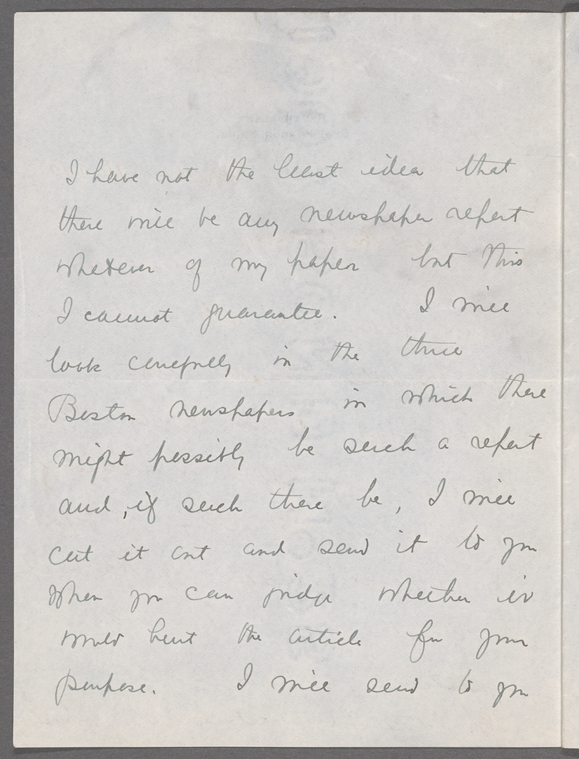 I have not the least idea that
there will be any newspaper report
whatever of my paper but this
I cannot guarantee. I will
look carefully in the three
Boston newspapers in which there
might possibly be such a report
and, if such there be, I will
cut it out and send it to you
when you can judge whether it
would hurt the article for your
purpose. I will send to you